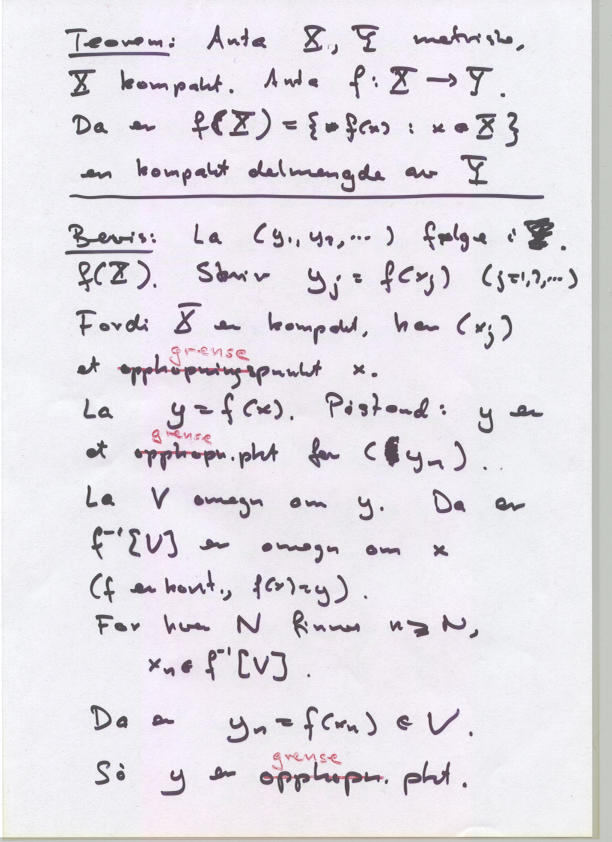 Teorem: Anta X, Y metriske,
X kompakt. Anta f: X → Y.
Da er f(X) = { f(x) : x ∈ X }
en kompakt delmengde av Y
Bevis: La (y₁, y₂, ...) følge i
f(X). Skriv yⱼ = f(xⱼ) (j=1,2,...)
Fordi X er kompakt, har (xⱼ)
grense
et opphopningspunkt x.
La y = f(x). Påstand: y er
grense
et opphopn.pkt for (yₙ).
La V omegn om y. Da er
f⁻¹[V] en omegn om x
(f er kont., f(x)=y).
For hver N finnes n ≥ N,
xₙ ∈ f⁻¹[V].
Da er yₙ = f(xₙ) ∈ V.
grense
Så y er opphopn. pkt.